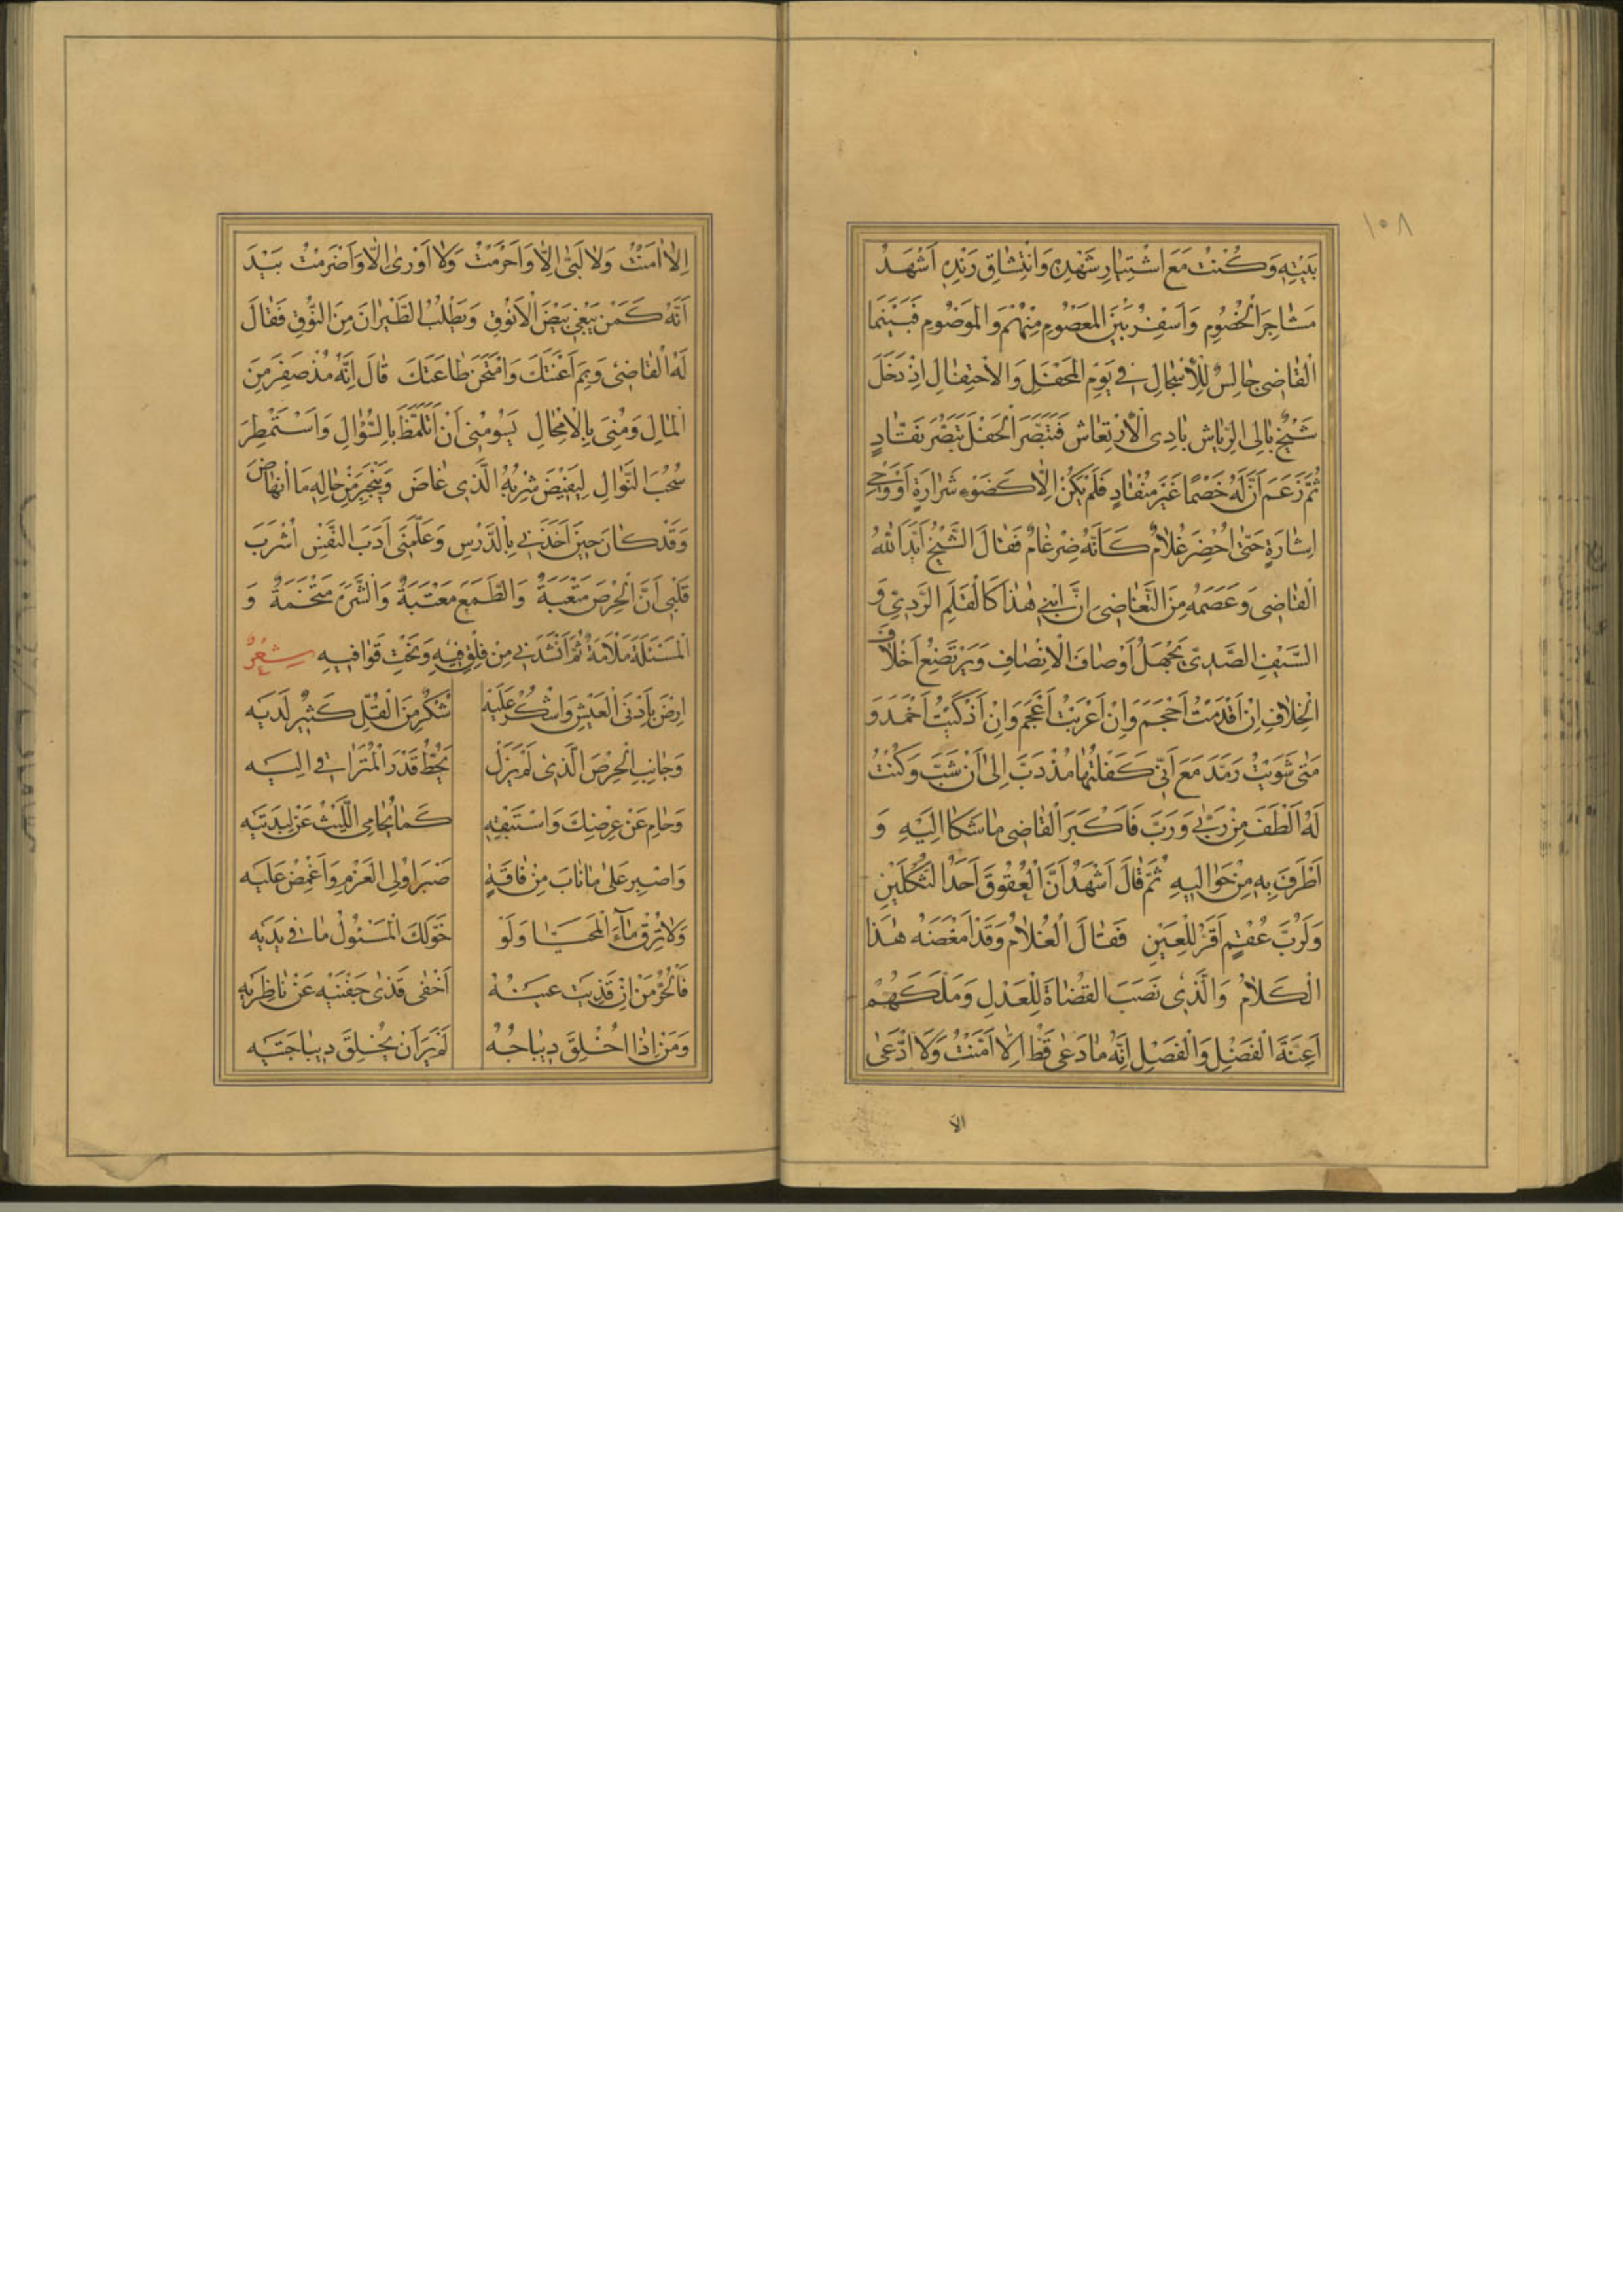 ١٠٨
بَيْتِهِ وَكُنْتُ مَعَ اشْتِيَارِ شَهْدِهِ وَانْتِشَاقِ رَنْدِهِ اَشْهَدُ
مَشَاجِرَ الْخُصُومِ وَاَسْفِرُ بَيْنَ المَعْصُومِ مِنْهُمْ وَالمَوْصُومِ فَبَيْنَمَا
الْقَاضِى جَالِسٌ لِلْأَسْجَالِ فِى يَوْمِ المَحْفَلِ وَالْاحْتِفَالِ اِذْ دَخَلَ
شَيْخٌ بَالِى الرِّيَاشِ بَادِى الْأِرْتِعَاشِ فَتَبَصَّرَ الْحَفْلَ تَبَصُّرَ نَقَّادٍ
ثُمَّ زَعَمَ اَنَّ لَهُ خَصْمًا غَيْرَ مُنْقَادٍ فَلَمْ يَكُنْ اِلَّا كَضَوْءِ شَرَارَةٍ اَوْ وَحْىِ
اِشَارَةٍ حَتّىٰ اُحْضِرَ غُلَامٌ كَاَنَّهُ ضِرْغَامٌ فَقَالَ الشَّيْخُ اَيَّدَ اللهُ
الْقَاضِى وَعَصَمَهُ مِنَ التَّغَاضِى اِنَّ ابْنِى هٰذَا كَالْقَلَمِ الرَّدِىِّ وَ
السَّيْفِ الصَّدِىِّ يَجْهَلُ اَوْصَافَ الْاِنْصَافِ وَيَرْتَضِعُ اَخْلَافَ
الْخِلَافِ اِنْ اَقْدَمْتُ اَحْجَمَ وَاِنْ اَعْرَبْتُ اَعْجَمَ وَاِنْ اَذْكَيْتُ اَخْمَدَ وَ
مَتٰى شَوَيْتُ رَمَّدَ مَعَ اَنّى كَفَلْتُهَا مُذْ دَبَّ اِلىٰ اَنْ شَبَّ وَكُنْتُ
لَهُ اَلْطَفَ مَنْ رَبّٰى وَرَبَّ فَاَكْبَرَ الْقَاضِى مَا شَكَا اِلَيْهِ وَ
اَطْرَفَ بِهِ مَنْ حَوَالَيْهِ ثُمَّ قَالَ اَشْهَدُ اَنَّ الْعُقُوقَ اَحَدُ الثُّكْلَيْنِ
وَلَرُبَّ عُقْمٍ اَقَرُّ لِلْعَيْنِ فَقَالَ الْغُلَامُ وَقَدْ اَمْعَضَهُ هٰذَا
الْكَلَامُ وَالَّذِى نَصَبَ القُضَاةَ لِلْعَدْلِ وَمَلَّكَهُمْ
اَعِنَّةَ الْفَضْلِ وَالْفَصْلِ اِنَّهُ مَا دَعٰى قَطُّ اِلَّا اَمَّنْتُ وَلَا ادَّعىٰ
الا
اِلَّا اٰمَنْتُ وَلَا لَبّٰى اِلَّا وَاَحْرَمْتُ وَلَا اَوْرىٰ اِلَّا وَاَضْرَمْتُ بَيْدَ
اَنَّهُ كَمَنْ يَبْغِى بَيْضَ الْاَنُوْقِ وَيَطْلُبُ الطَّيَرَانَ مِنَ النُّوْقِ فَقَالَ
لَهُ الْقَاضِىْ وَبِمَ اَعْنَتَكَ وَامْتَحَنَ طَاعَتَكَ قَالَ اِنَّهُ مُذْ صَفِرَ مِنَ
الْمَالِ وَمُنِىَ بِالْاِمْحَالِ يَسُومُنِى اَنْ اَتَلَمَّظَ بِالسُّؤَالِ وَاَسْتَمْطِرَ
سُحُبَ النَّوَالِ لِيَفِيْضَ شِرْبُهُ الَّذِى غَاضَ وَيَنْجَبِرَ مِنْ حَالِهِ مَا انْهَاضَ
وَقَدْ كَانَ حِيْنَ اَخَذَنِى بِالدَّرْسِ وَعَلَّمَنِى اَدَبَ النَّفْسِ اَشْرَبَ
قَلْبِى اَنَّ الْحِرْصَ مَتْعَبَةٌ وَالطَّمَعَ مَعْتَبَةٌ وَالشَّرَهَ مَتْخَمَةٌ وَ
الْمَسْئَلَةَ مَلْاَمَةٌ ثُمَّ اَنْشَدَنِى مِنْ فَلْقِ فِيْهِ وَنَحْتِ قَوَافِيهِ شِعْرٌ
اِرْضَ بِاَدْنَى الْعَيْشِ وَاشْكُرْ عَلَيْهِ شُكْرَ مَنِ الْقُلُّ كَثِيْرٌ لَدَيْهِ
وَجَانِبِ الْحِرْصَ الَّذِى لَمْ يَزَلْ يَحُطُّ قَدْرَ الْمُتَرَاقى اِلَيْهِ
وَحَامِ عَنْ عِرْضِكَ وَاسْتَبْقِهِ كَمَا يُحَامِى اللَّيْثُ عَنْ لِبْدَتَيْهِ
وَاصْبِر عَلىٰ مَا نَابَ مِنْ فَاقَةٍ صَبْرَ اُولِى الْعَزْمِ وَاَغْمِضْ عَلَيْهِ
وَلَا تُرِقْ مَاۤءَ الْمُحَيَّا وَلَوْ خَوَّلَكَ الْمَسْئُولُ مَا فِى يَدَيْهِ
فَالْحُرُّ مَنْ اِنْ قَذِيَتْ عَيْنُهُ اَخْفٰى قَذىٰ جَفْنَيْهِ عَنْ نَاظِرَيْهِ
وَمَنْ اِذَا اخْلَقَ دِيْبَاجُهُ لَمْ يَرَ اَنْ يُخْلِقَ دِيْبَاجَتَيْهِ